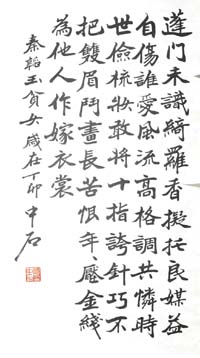 蓬門未識綺羅香擬托良媒益
自傷誰愛風流高格調共憐時
世儉梳妝敢將十指誇針巧不
把雙眉鬥畫長苦恨年々壓金綫
為他人作嫁衣裳
秦韜玉貧女歲在丁卯中石